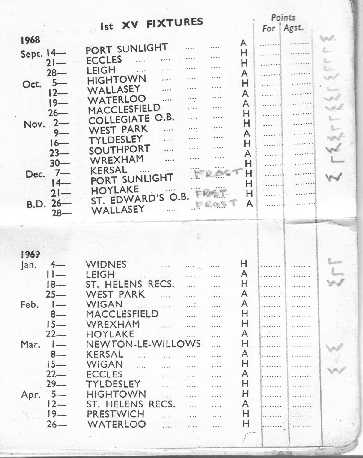 1st XV FIXTURES
Points
For Agst.
1968
Sept. 14— PORT SUNLIGHT A
21— ECCLES H
28— LEIGH
Oct. 5— HIGHTOWN
12— WALLASEY H
19— WATERLOO A
26— MACCLESFIELD
Nov. 2— COLLEGIATE O.B.
9— WEST PARK
16— TYLDESLEY
23— SOUTHPORT
30— WREXHAM
Dec. 7— KERSAL H
14— PORT SUNLIGHT FROST H
21— HOYLAKE H
B.D. 26— ST. EDWARD'S O.B. FROST H
28— WALLASEY FROST A
1969
Jan. 4— WIDNES H
11— LEIGH A
18— ST. HELENS RECS. H
25— WEST PARK A
Feb. 1— WIGAN A
8— MACCLESFIELD H
15— WREXHAM H
22— HOYLAKE A
Mar. 1— NEWTON-LE-WILLOWS H
8— KERSAL A
15— WIGAN H
22— ECCLES A
29— TYLDESLEY A
Apr. 5— HIGHTOWN H
12— ST. HELENS RECS. A
19— PRESTWICH H
26— WATERLOO H